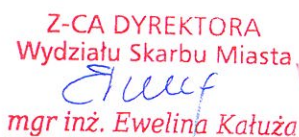 Z-CA DYREKTORA
Wydziału Skarbu Miasta
mgr inż. Ewelina Kałuża